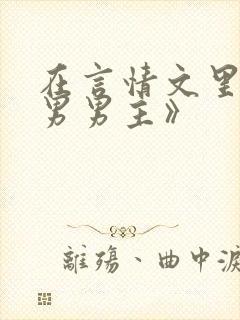 在言情文里
男男主》
離殤、曲中淚